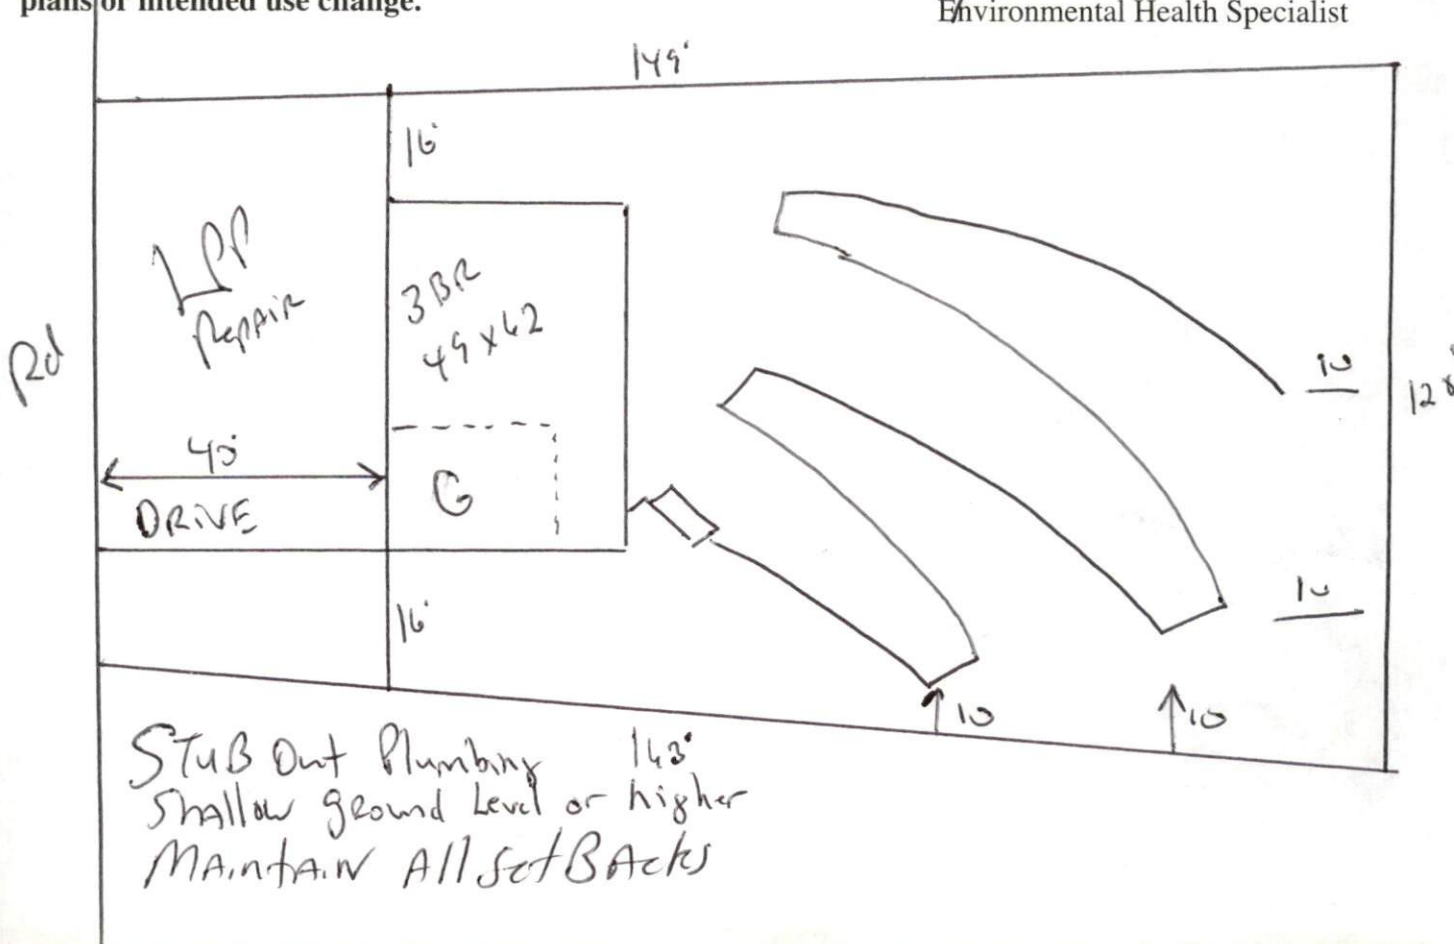 plans or intended use change.
Environmental Health Specialist
149'
16'
LPP
Repair
3BR
49x62
Rd
10
40'
DRIVE
G
10
16'
10
10
STUB Out Plumbing
163'
Shallow ground Level or higher
MAintAiN All SetBAcks